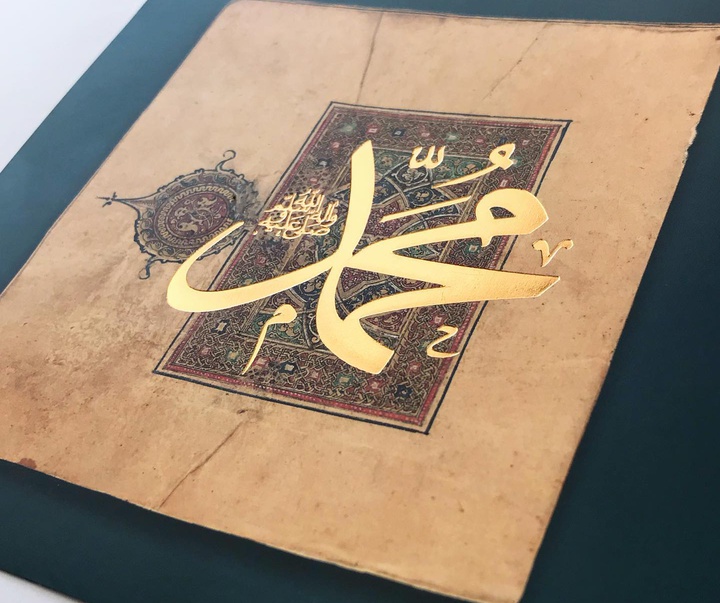 مُحَمَّد
صلى الله عليه وآله